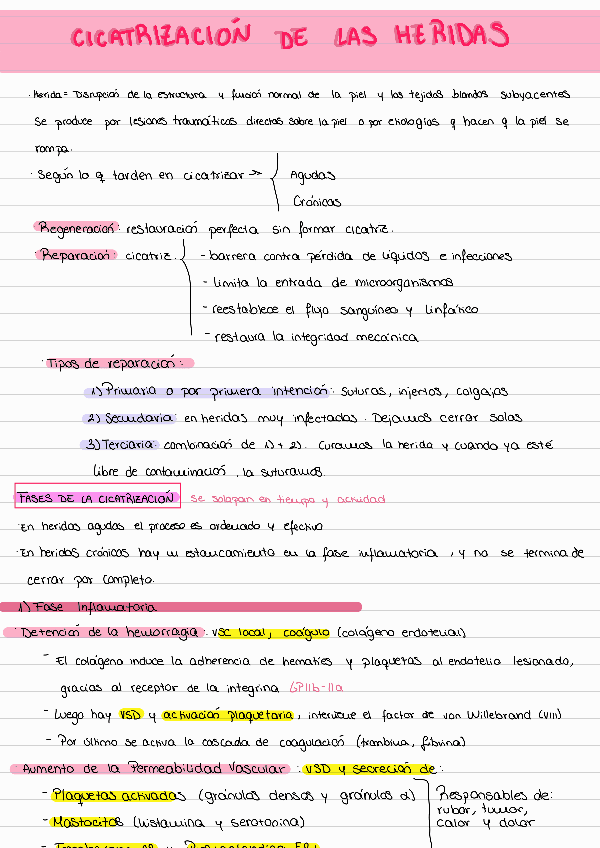 CICATRIZACIÓN DE LAS HERIDAS
· Herida = Disrupción de la estructura y función normal de la piel y los tejidos blandos subyacentes
Se produce por lesiones traumáticas directas sobre la piel o por etiologías q hacen q la piel se
rompa.
· Según lo q tarden en cicatrizar ->> Agudas
Crónicas
Regeneración: restauración perfecta sin formar cicatriz.
· Reparación: cicatriz. - barrera contra pérdida de líquidos e infecciones
- limita la entrada de microorganismos
- reestablece el flujo sanguíneo y linfático
- restaura la integridad mecánica
· Tipos de reparación:
1) Primaria o por primera intención: suturas, injertos, colgajos
2) Secundaria: en heridas muy infectadas. Dejamos cerrar solas
3) Terciaria: combinación de 1) + 2). Curamos la herida y cuando ya esté
libre de contaminación, la suturamos.
FASES DE LA CICATRIZACIÓN se solapan en tiempo y actividad
· En heridas agudas el proceso es ordenado y efectivo
· En heridas crónicas hay un estancamiento en la fase inflamatoria, y no se termina de
cerrar por completo.
1) Fase Inflamatoria
Detención de la hemorragia: VSC local, coágulo (colágeno endotelial)
- El colágeno induce la adherencia de hematíes y plaquetas al endotelio lesionado,
gracias al receptor de la integrina GPIIb-IIa
- Luego hay VSD y activación plaquetaria, interviene el factor de von Willebrand (VIII)
- Por último se activa la cascada de coagulación (trombina, fibrina)
Aumento de la Permeabilidad Vascular: VSD y secreción de:
- Plaquetas activadas (gránulos densos y gránulos α)
- Mastocitos (histamina y serotonina)
Responsables de:
rubor, tumor,
calor y dolor